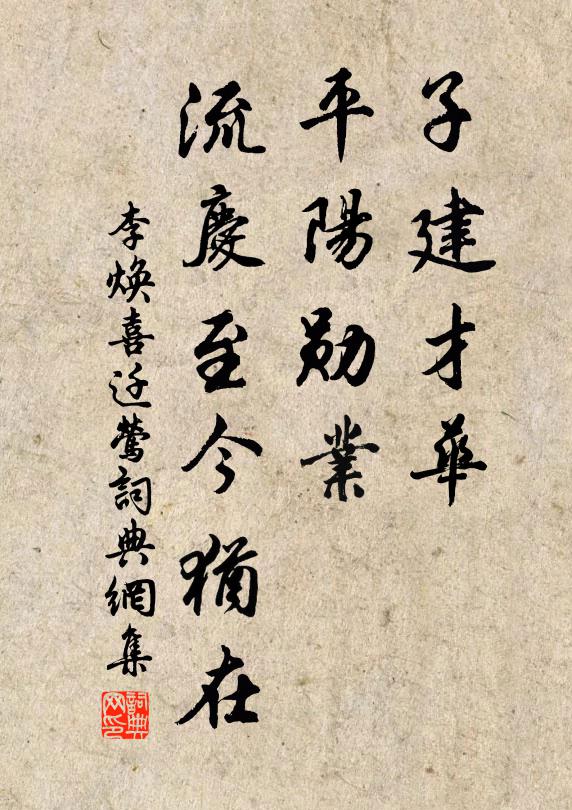 子建才華
平陽勛業
流慶至今猶在
李煥喜迁鶯詞典網集
詞典
网印